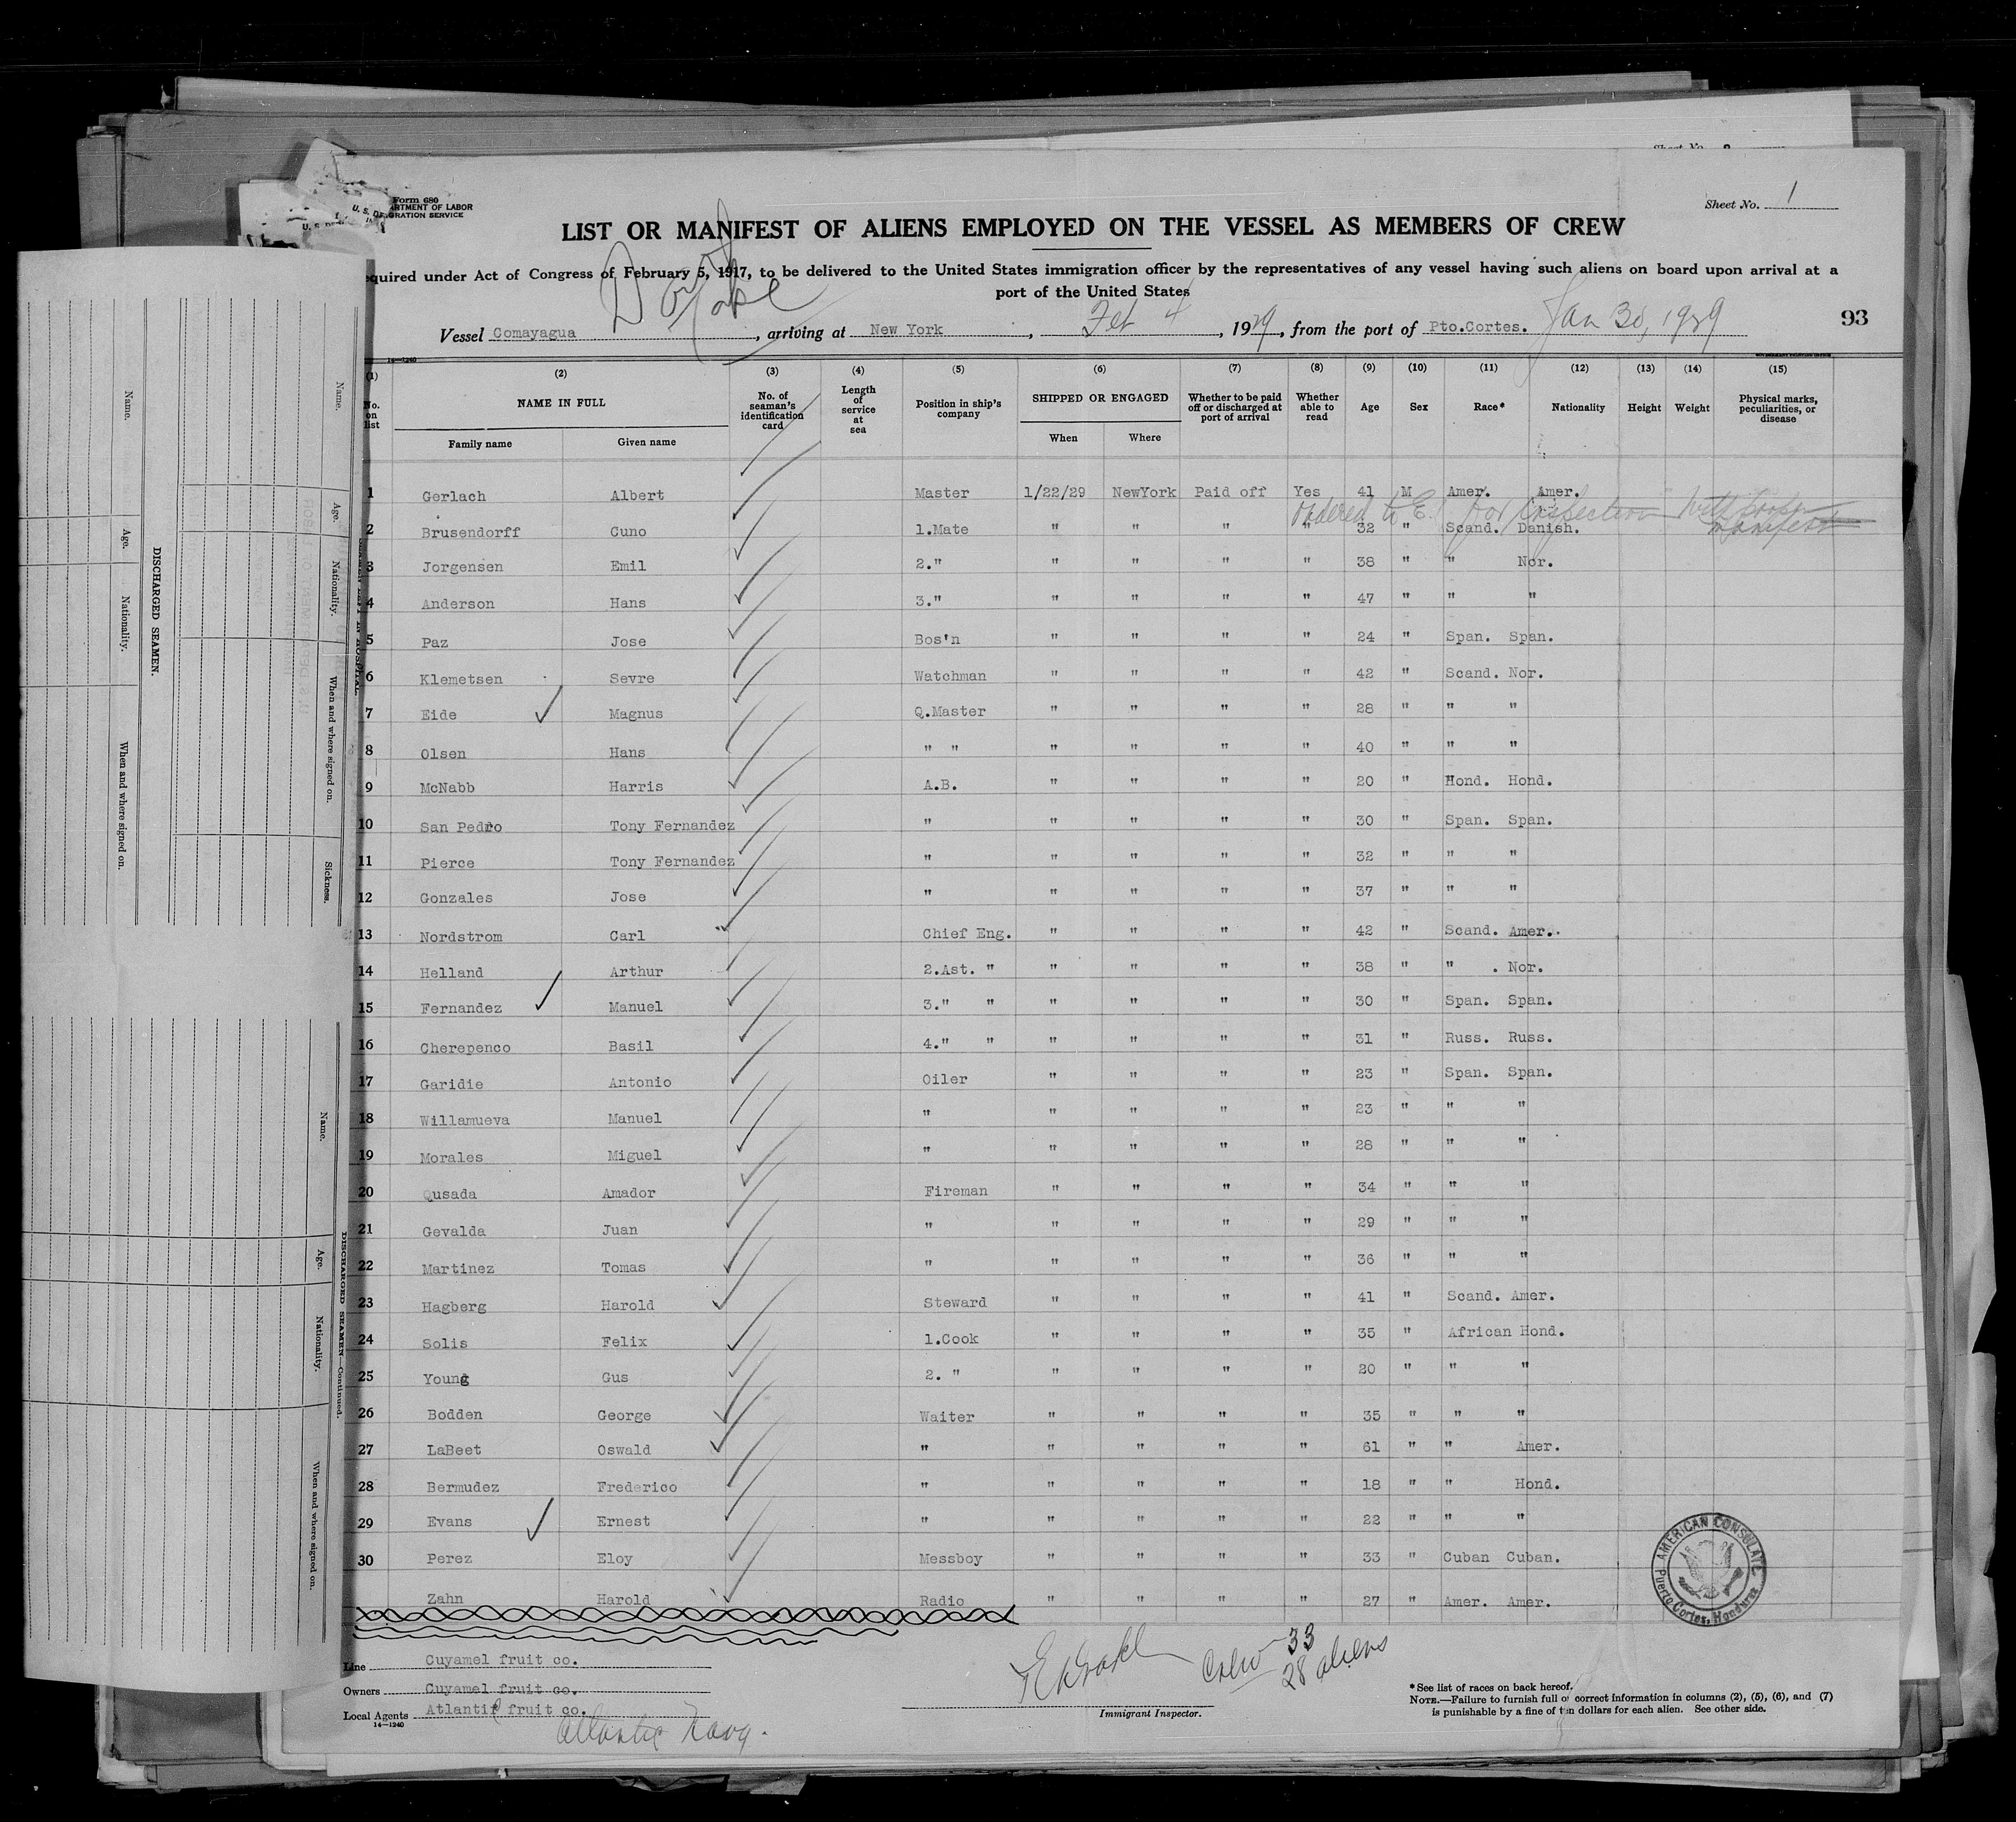 Sheet No. 2
Form 680
U. S. DEPARTMENT OF LABOR
IMMIGRATION SERVICE
Sheet No. 1
LIST OR MANIFEST OF ALIENS EMPLOYED ON THE VESSEL AS MEMBERS OF CREW
equired under Act of Congress of February 5, 1917, to be delivered to the United States immigration officer by the representatives of any vessel having such aliens on board upon arrival at a
port of the United States
Vessel Comayagua, arriving at New York, Feb 4, 1929, from the port of Pto.Cortes. Jan 30, 1929
93
14—1240
(1) (2) (3) (4) (5) (6) (7) (8) (9) (10) (11) (12) (13) (14) (15)
No. on list NAME IN FULL Family name Given name No. of seaman's identification card Length of service at sea Position in ship's company SHIPPED OR ENGAGED When Where Whether to be paid off or discharged at port of arrival Whether able to read Age Sex Race* Nationality Height Weight Physical marks, peculiarities, or disease
1 Gerlach Albert Master 1/22/29 NewYork Paid off Yes 41 M Amer. Amer.
Ordered to E. I. for inspection with
manifest
2 Brusendorff Cuno 1.Mate " " " " 32 " Scand. Danish.
3 Jorgensen Emil 2." " " " " 38 " " Nor.
4 Anderson Hans 3." " " " " 47 " " "
5 Paz Jose Bos'n " " " " 24 " Span. Span.
6 Klemetsen Sevre Watchman " " " " 42 " Scand. Nor.
7 Eide Magnus Q.Master " " " " 28 " " "
8 Olsen Hans " " " " " " 40 " " "
9 McNabb Harris A.B. " " " " 20 " Hond. Hond.
10 San Pedro Tony Fernandez " " " " " 30 " Span. Span.
11 Pierce Tony Fernandez " " " " " 32 " " "
12 Gonzales Jose " " " " " 37 " " "
13 Nordstrom Carl Chief Eng. " " " " 42 " Scand. Amer.
14 Helland Arthur 2.Ast. " " " " " 38 " " Nor.
15 Fernandez Manuel 3." " " " " " 30 " Span. Span.
16 Cherepenco Basil 4." " " " " " 31 " Russ. Russ.
17 Garidie Antonio Oiler " " " " 23 " Span. Span.
18 Willamueva Manuel " " " " " 23 " " "
19 Morales Miguel " " " " " 28 " " "
20 Qusada Amador Fireman " " " " 34 " " "
21 Gevalda Juan " " " " " 29 " " "
22 Martinez Tomas " " " " " 36 " " "
23 Hagberg Harold Steward " " " " 41 " Scand. Amer.
24 Solis Felix 1.Cook " " " " 35 " African Hond.
25 Young Gus 2. " " " " " 20 " " "
26 Bodden George Waiter " " " " 35 " " "
27 LaBeet Oswald " " " " " 61 " " Amer.
28 Bermudez Frederico " " " " " 18 " " Hond.
29 Evans Ernest " " " " " 22 " " "
30 Perez Eloy Messboy " " " " 33 " Cuban Cuban.
Zahn Harold Radio " " " " 27 " Amer. Amer.
AMERICAN CONSULATE
Puerto Cortes, Honduras
Line Cuyamel fruit co.
Owners Cuyamel fruit co.
Local Agents Atlantic fruit co.
14—1240
Atlantic Navg.
Immigrant Inspector.
Crew 33
28 aliens
*See list of races on back hereof.
NOTE.—Failure to furnish full or correct information in columns (2), (5), (6), and (7)
is punishable by a fine of ten dollars for each alien. See other side.
Name. Age. Nationality. When and where signed on. Sickness.
DISCHARGED SEAMEN.
Name. Age. Nationality. When and where signed on.
DISCHARGED SEAMEN—Continued.
Name. Age. Nationality. When and where signed on.